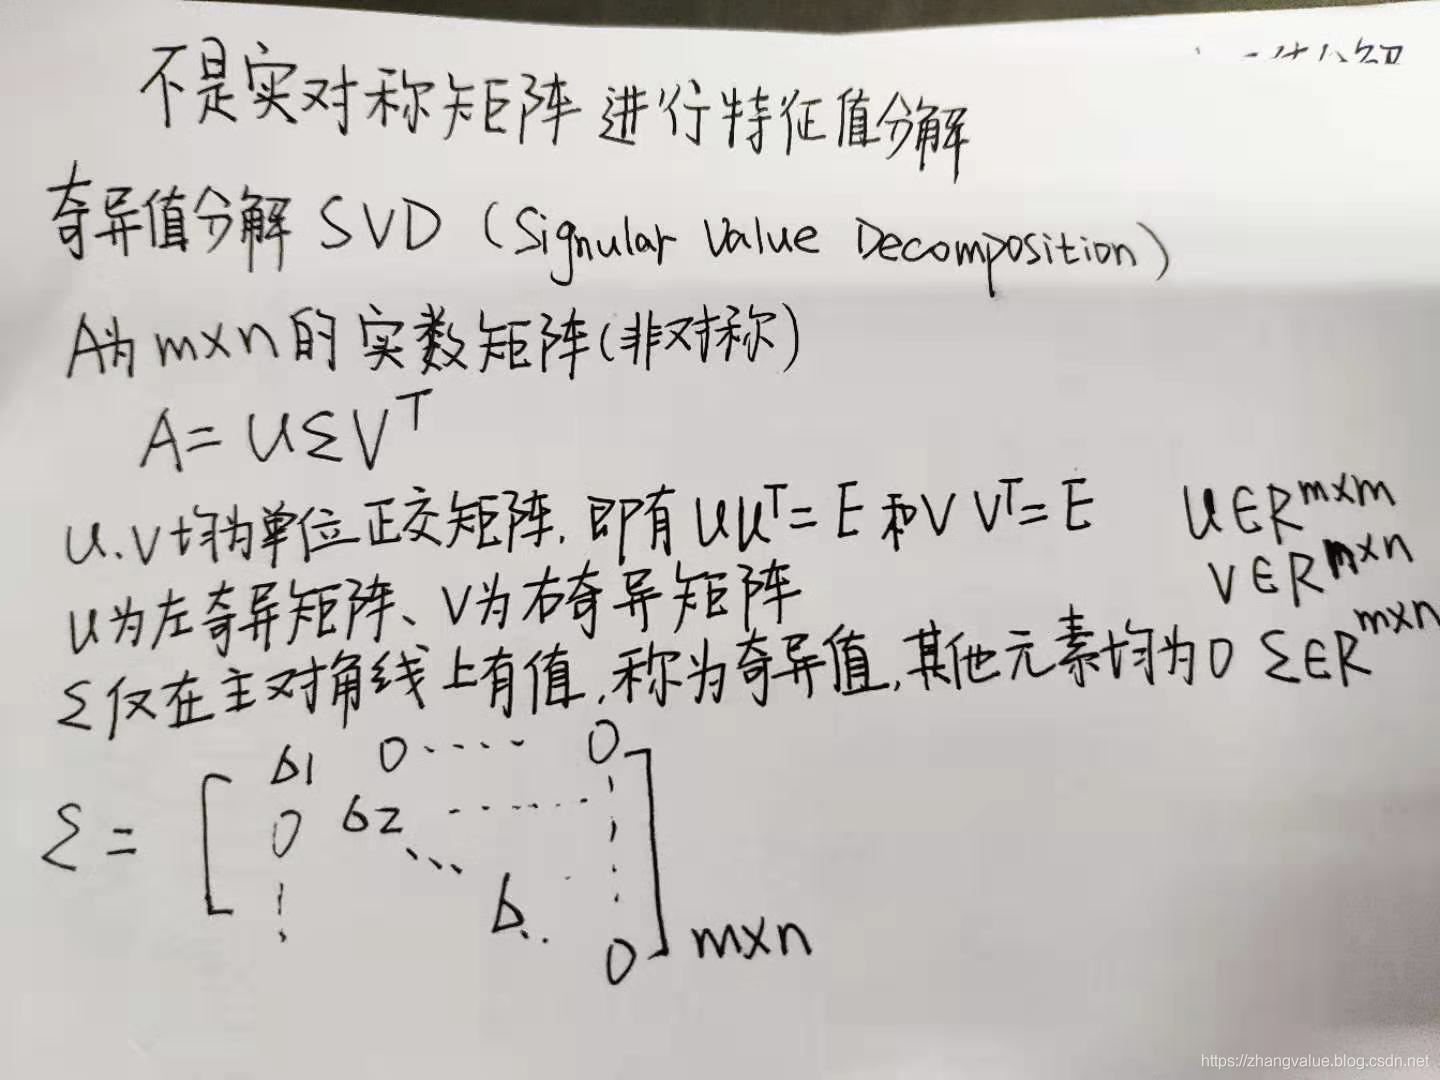 不是实对称矩阵进行特征值分解
奇异值分解 SVD (Signular Value Decomposition)
A为m×n的实数矩阵(非对称)
A=UΣV^T
U、V均为单位正交矩阵, 即有UU^T=E和VV^T=E U∈R^{m×m}
V∈R^{m×n}
U为左奇异矩阵、V为右奇异矩阵
Σ仅在主对角线上有值,称为奇异值,其他元素均为0 Σ∈R^{m×n}
σ1 0 ···· 0
Σ = [ 0 σ2 ······· ]
⋮ ··· σ ··
0 m×n
https://zhangvalue.blog.csdn.net